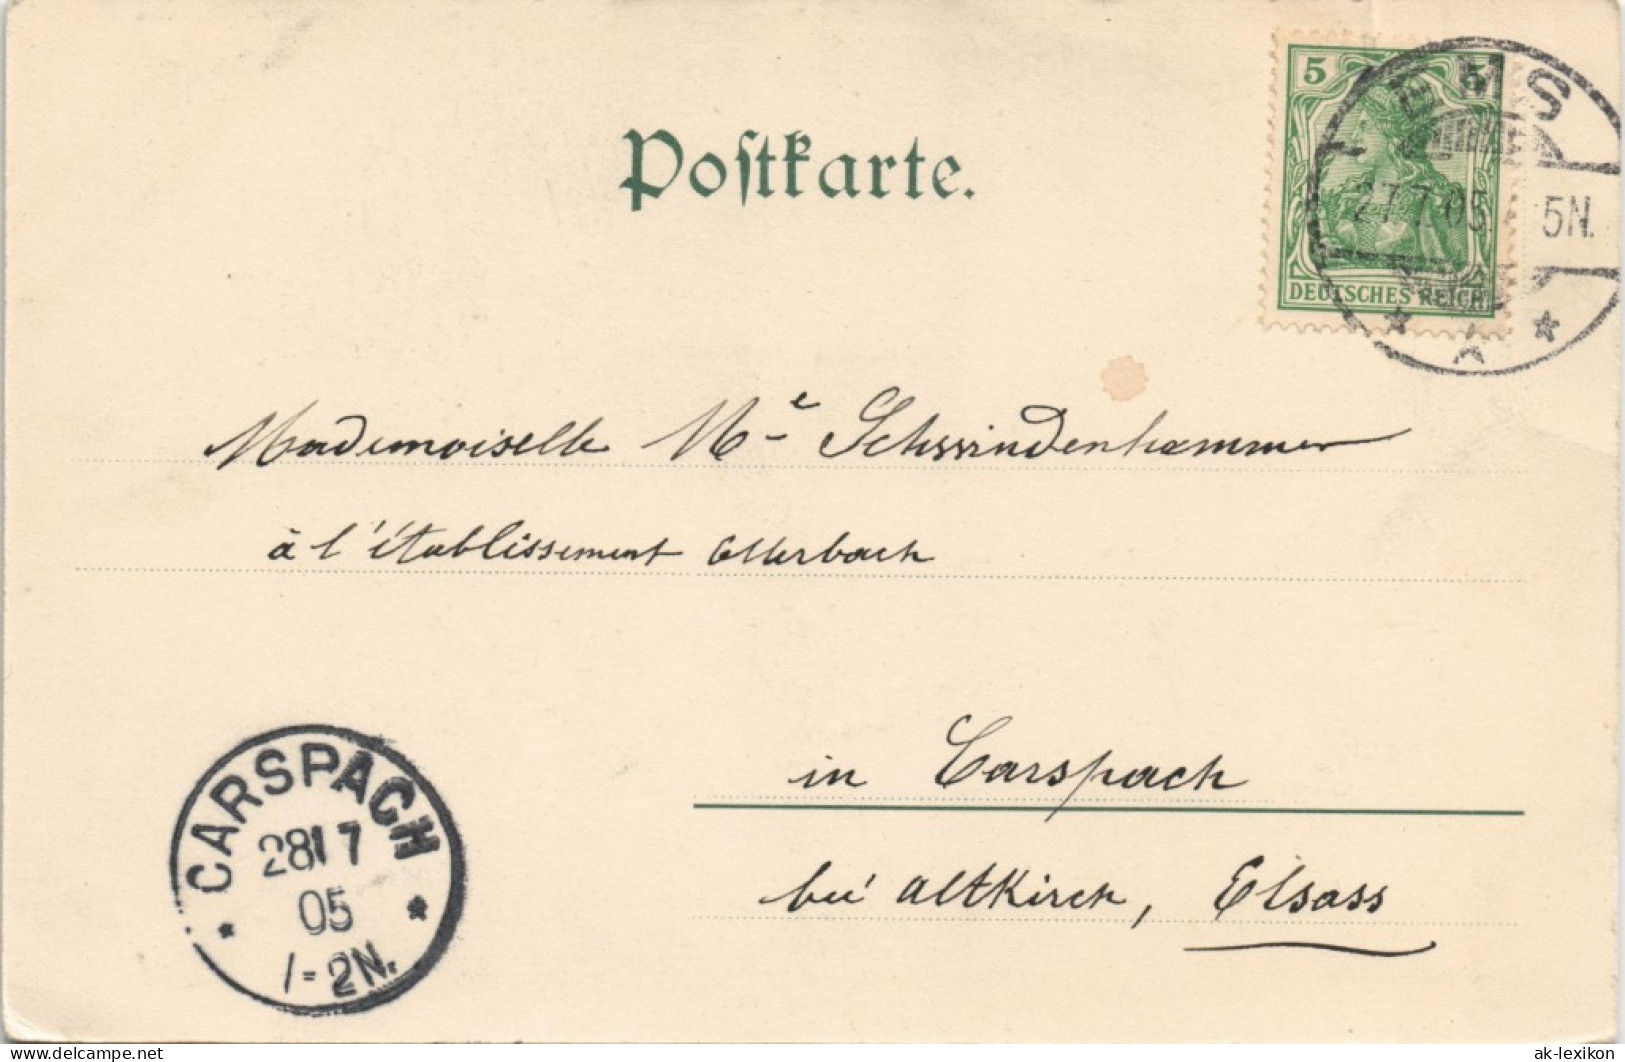 5 5
EMS
Postkarte.
27.7.05. 5N.
DEUTSCHES REICH
Mademoiselle Mˡᵉ Schwindenhammer
à l'établissement
in Carspach
CARSPACH
28 7
05
1-2N.
bei Altkirch, Elsass
delcampe.net
ak-lexikon